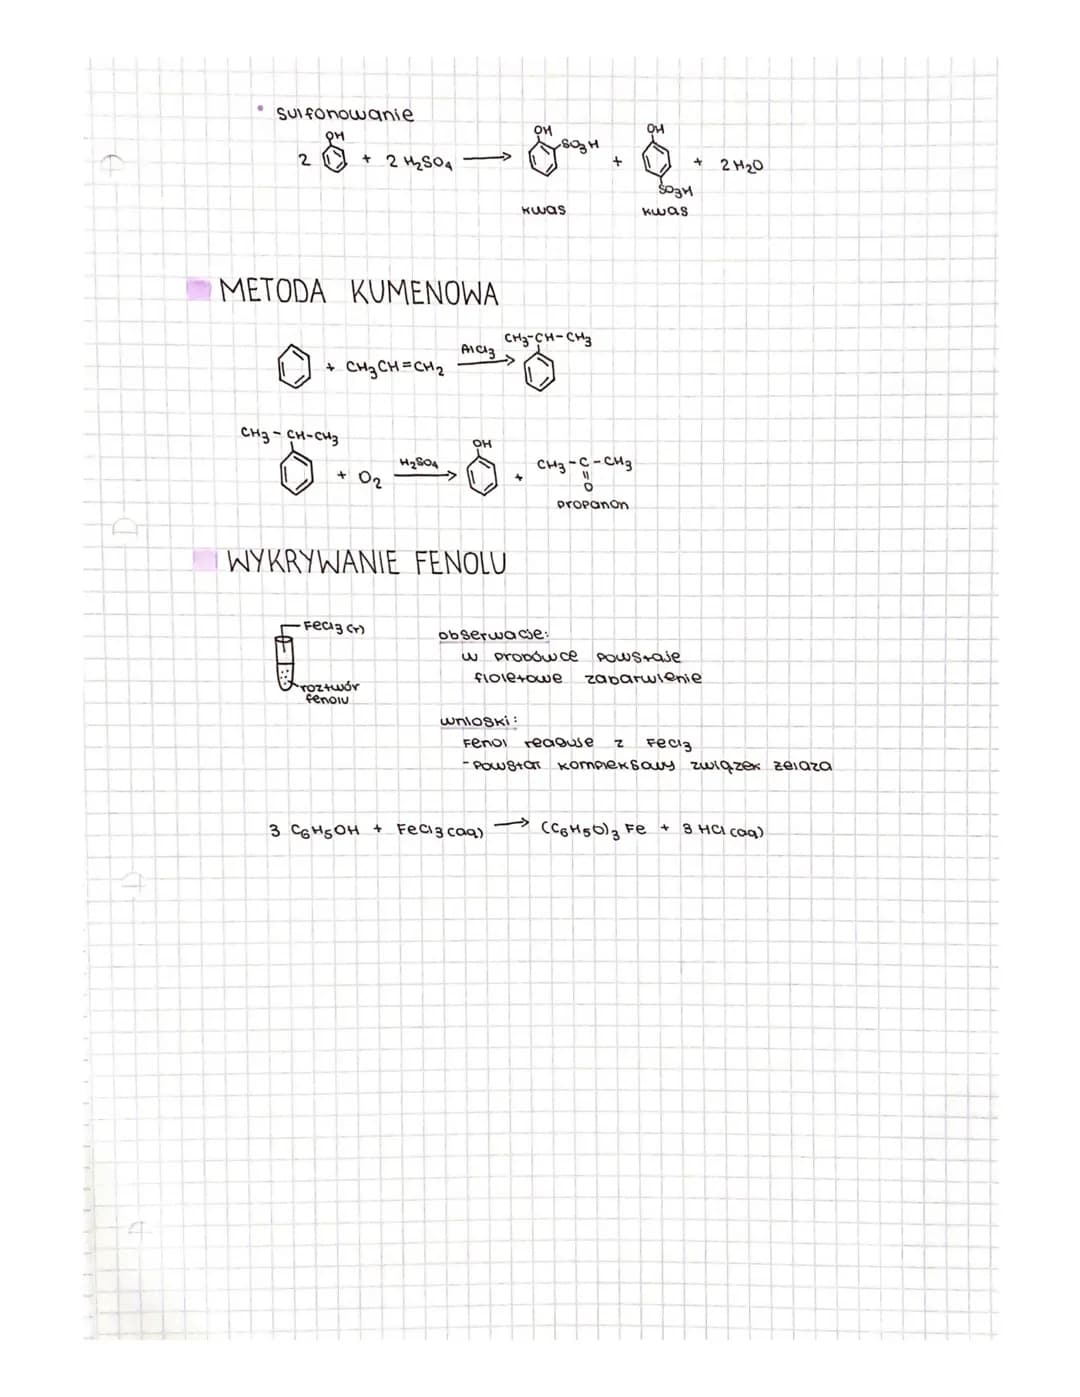 • sulfonowanie
OH OH OH
2 + 2 H₂SO₄ ⟶ SO₃H + + 2 H₂O
SO₃H
kwas kwas
METODA KUMENOWA
+ CH₃CH=CH₂ AlCl₃ ⟶ CH₃-CH-CH₃
CH₃-CH-CH₃ OH
+ O₂ H₂SO₄ ⟶ + CH₃-C-CH₃
O
propanon
WYKRYWANIE FENOLU
FeCl₃ (r)
roztwór
fenolu
obserwacje:
w probówce powstaje
fioletowe zabarwienie
wnioski:
Fenol reaguje z FeCl₃
- powstał kompleksowy związek żelaza
3 C₆H₅OH + FeCl₃ (aq) ⟶ (C₆H₅O)₃ Fe + 3 HCl (aq)